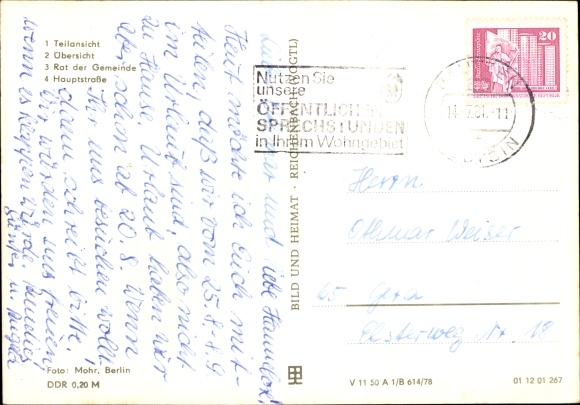 1 Teilansicht
2 Übersicht
3 Rat der Gemeinde
4 Hauptstraße
und liebe Hannelore!
Heut möchte ich Euch mit-
teilen, daß wir vom 25.8.-8.9
im Urlaub sind, also nicht
zu Hause. Urlaub haben wir
aber schon ab 20.8. Wenn
Ihr uns besuchen wollt
dann schreibt bitte.
Wir würden uns freuen,
wenn es klappen würde.
u.
Foto: Mohr, Berlin
DDR 0,20 M
BILD UND HEIMAT · REICHENBACH (VOGTL)
Nutzen Sie
unsere
ÖFFENTLICHEN
SPRECHSTUNDEN
in Ihrem Wohngebiet
20
DDR
Herrn
Othmar Weiser
65 Gera
Elsterweg Nr. 19
V 11 50 A 1/B 614/78
01 12 01 267